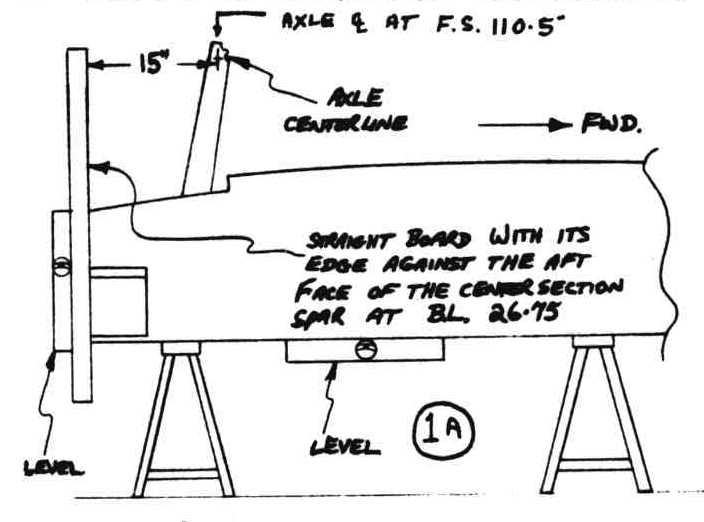 AXLE ℄ AT F.S. 110.5"
15"
AXLE
CENTERLINE
FWD.
STRAIGHT BOARD WITH ITS
EDGE AGAINST THE AFT
FACE OF THE CENTER SECTION
SPAR AT B.L. 26.75
LEVEL
LEVEL
1A